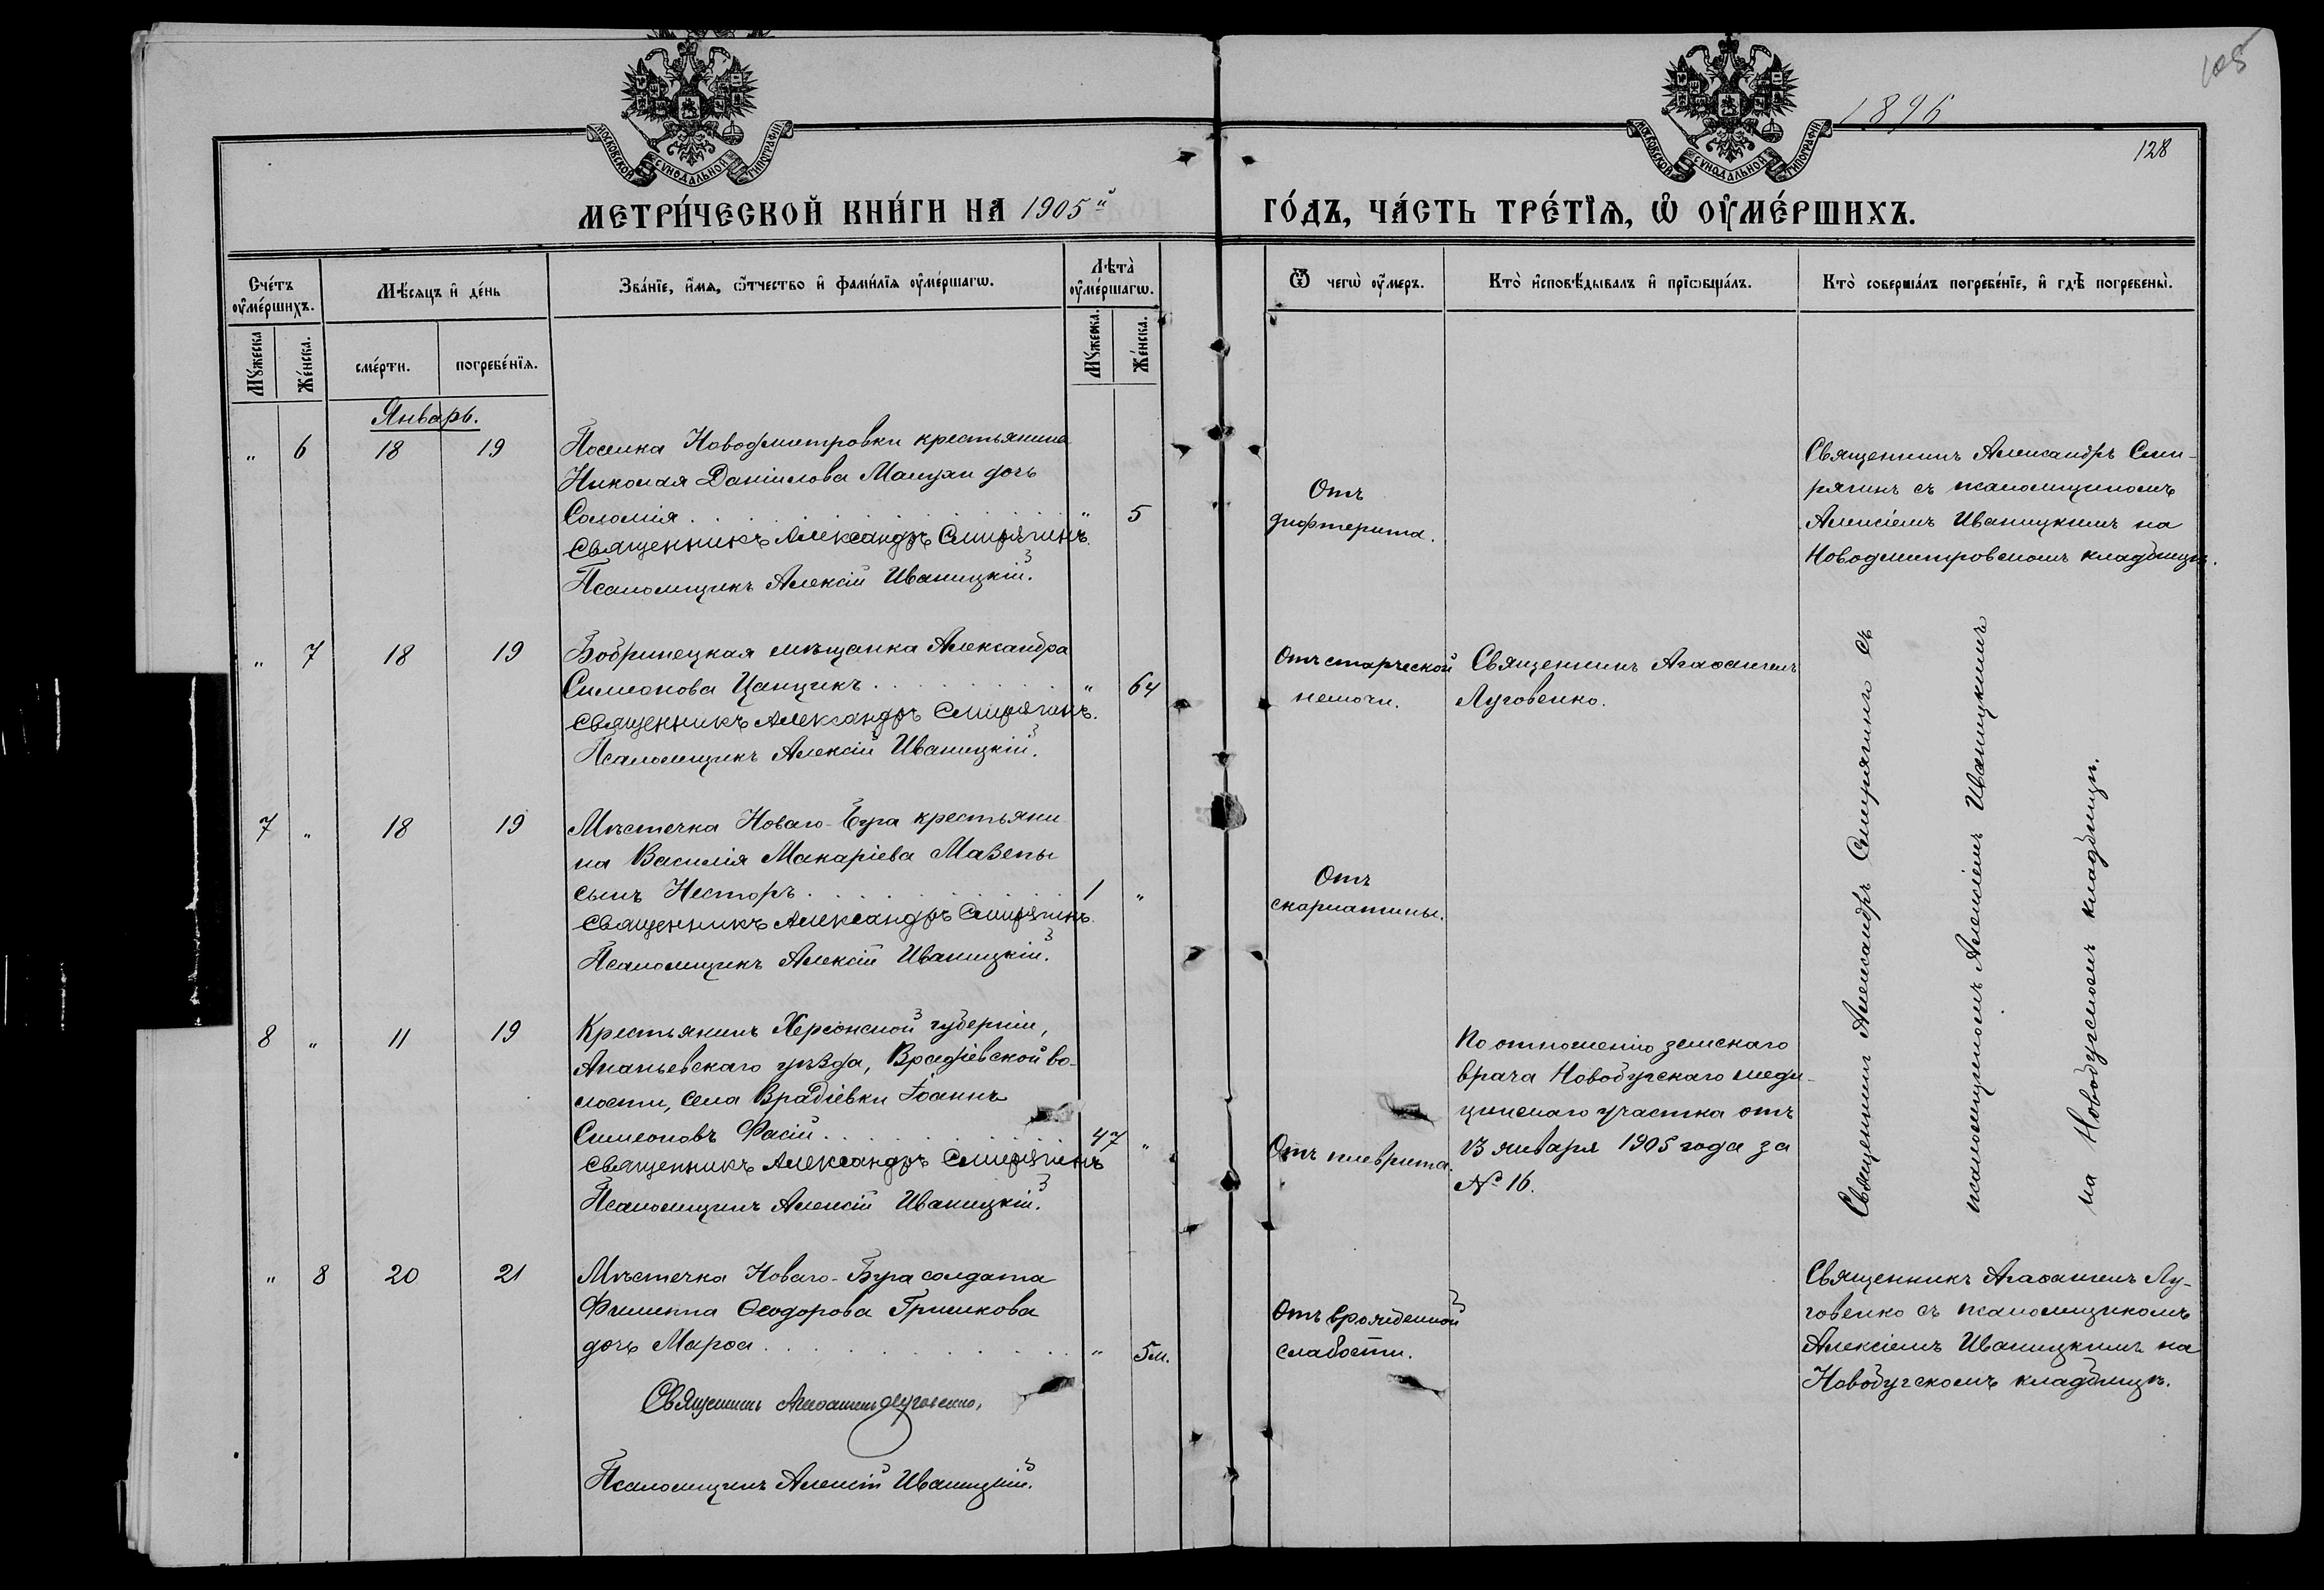 МОСКОВСКОЙ СУНОДАЛЬНОЙ ТИПОГРАФІИ
МОСКОВСКОЙ СУНОДАЛЬНОЙ ТИПОГРАФІИ
1896
128
МЕТРИ́ЧЕСКОЙ КНИ́ГИ НА 1905й
ГО́ДЪ, ЧА́СТЬ ТРЕ́ТЇѦ, Ѡ ОУ҆МЕ́РШИХЪ.
Сче́тъ оу҆ме́ршихъ.
Мѣ́сяцъ и҆ де́нь
Зва́нїе, и҆́мя, ѻ҆́тчество и҆ фами́лїя оу҆ме́ршагѡ.
Лѣ́та оу҆ме́ршагѡ.
Ѿ чегѡ̀ оу҆́меръ.
Кто̀ и҆сповѣ́дывалъ и҆ прїѡбща́лъ.
Кто̀ соверша́лъ погребе́нїе, и҆ гдѣ̀ погребены̀.
Мꙋ́жеска
Же́нска.
сме́рти.
погребе́нїя.
Мꙋ́жеска.
Же́нска.
Январь.
" 6 18 19
Поселка Новодмитровки крестьянина
Николая Даніилова Мацуан дочь
Соломія " 5
Священникъ Александръ Смирягинъ.
Псаломщикъ Алексій Иваницкій.
Отъ
дифтерита.
Священникъ Александръ Сми-
рягинъ съ псаломщикомъ
Алексіемъ Иваницкимъ на
Новодмитровскомъ кладбищѣ.
" 7 18 19
Бобринецкая мѣщанка Александра
Симеонова Цанцикъ " 64
Священникъ Александръ Смирягинъ.
Псаломщикъ Алексій Иваницкій.
Отъ старческой
немочи.
Священникъ Агаѳангелъ
Луговенко.
Священникъ Александръ Смирягинъ съ
псаломщикомъ Алексіемъ Иваницкимъ
на Новобугскомъ кладбищѣ.
7 " 18 19
Мѣстечка Новаго-Буга крестьяни
на Василія Макаріева Мазепы
сынъ Несторъ 1 "
Священникъ Александръ Смирягинъ.
Псаломщикъ Алексій Иваницкій.
Отъ
скарлатины.
8 " 11 19
Крестьянинъ Херсонской губерніи,
Ананьевскаго уѣзда, Врадіевской во-
лости, села Врадіевки Іоаннъ
Симеоновъ Фасій 47 "
Священникъ Александръ Смирягинъ
Псаломщикъ Алексій Иваницкій.
Отъ плеврита.
По отношенію земскаго
врача Новобугскаго меди-
цинскаго участка отъ
13 января 1905 года за
№ 16.
" 8 20 21
Мѣстечка Новаго-Буга солдата
Филиппа Ѳеодорова Гришкова
дочь Марѳа " 5м.
Священникъ Агаѳангелъ Луговенко,
Псаломщикъ Алексій Иваницкій.
Отъ врожденной
слабости.
Священникъ Агаѳангелъ Лу-
говенко съ псаломщикомъ
Алексіемъ Иваницкимъ на
Новобугскомъ кладбищѣ.